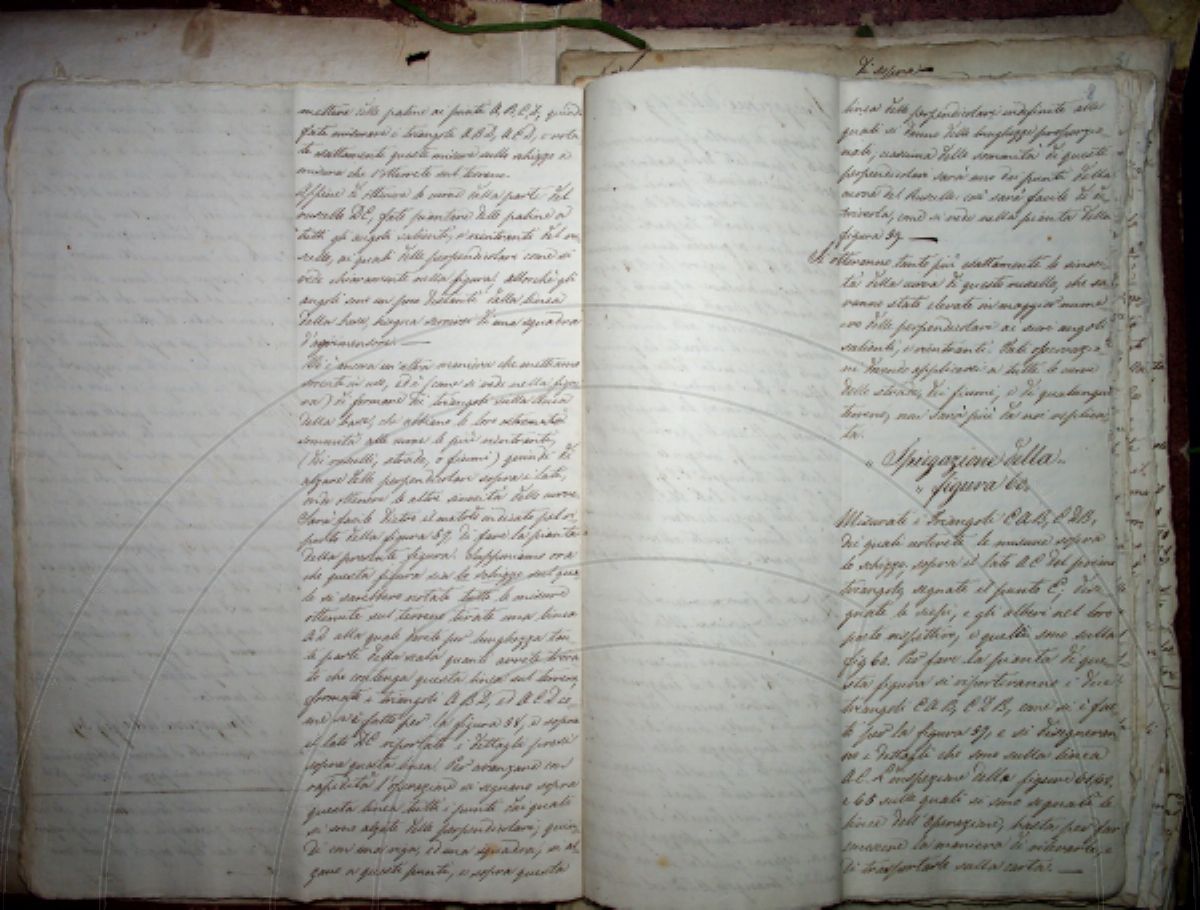 mettere delle paline ai punti A, B, C, D, quindi
fate misurare i triangoli A B D, A C D, e nota
te esattamente queste misure sullo schizzo a
misura che l'otterrete sul terreno.
Affine di ottenere le curve della parte del
ruscello DC, fate piantare delle paline a
tutti gli angoli salienti, e rientranti del ru
scello, ai quali delle perpendicolari come si
vede chiaramente nella figura. Allorché gli
angoli sono un poco distanti dalla linea
della base, bisogna servirsi di una squadra
d'agrimensore.
Vi è ancora un'altra maniera che mettiamo
sovente in uso, ed è (come si vede nella figu
ra) di formare dei triangoli sulla linea
della base, che abbiano le loro
sommità alle curve le più rientranti,
(dei ruscelli, strade, o fiumi) quindi di
alzare delle perpendicolari sopra i lati,
onde ottenere le altre sinuosità delle curve.
Sarà facile dietro il metodo indicato pel ri
porto della figura 57, di fare la pianta
della presente figura. Supponiamo ora
che questa figura sia lo schizzo sul qua
le si sarebbero notate tutte le misure
ottenute sul terreno tirate una linea
A D alla quale darete per lunghezza tan
te parti della scala quanti avrete trova
to che contenga questa linea sul terreno,
formate i triangoli A B D, ed A C D co
me si è fatto per la figura 58, e sopra
il lato DC riportate i dettagli presi
sopra questa linea. Per avanzare con
rapidità l'operazione si segnano sopra
questa linea tutti i punti dai quali
si sono alzate delle perpendicolari, quin
di con una riga, ed una squadra, si al
zano a questi punti, e sopra questa
Di sopra
2
linea delle perpendicolari indefinite alle
quali si danno delle lunghezze proporzio
nali, ciascuna delle sommità di queste
perpendicolari sarà uno dei punti della
curva del Ruscello così sarà facile di de
scriverla, come si vede nella pianta della
figura 59.
Si otterranno tanto più esattamente le sinuosi
tà della curva di questo ruscello, che sa
ranno state elevate in maggior nume
ro delle perpendicolari ai suoi angoli
salienti, e rientranti. Tale osservazio
ne dovendo applicarsi a tutte le curve
delle strade, dei fiumi, e di qualunque
terreno, non sarà più da noi replica
ta.
" Spiegazione della "
" figura 60. "
Misurati i Triangoli C A B, C D B,
dei quali noterete le misure sopra
lo schizzo, sopra il lato A C del primo
triangolo, segnate il punto E; dise
gnate le siepi, e gli alberi nel loro
posto rispettivo, e quali sono sulla
fig 60. Per fare la pianta di que
sta figura si riporteranno i due
triangoli C A B, C D B, come si è fat
to per la figura 57, e si disegneran
no i dettagli che sono sulla linea
A C. L'inspezione della figure
e 65 sulle quali si sono segnate le
linee dell'operazione, basta per far
conoscere la maniera di rilevarle, e
di trasportarle sulla carta.